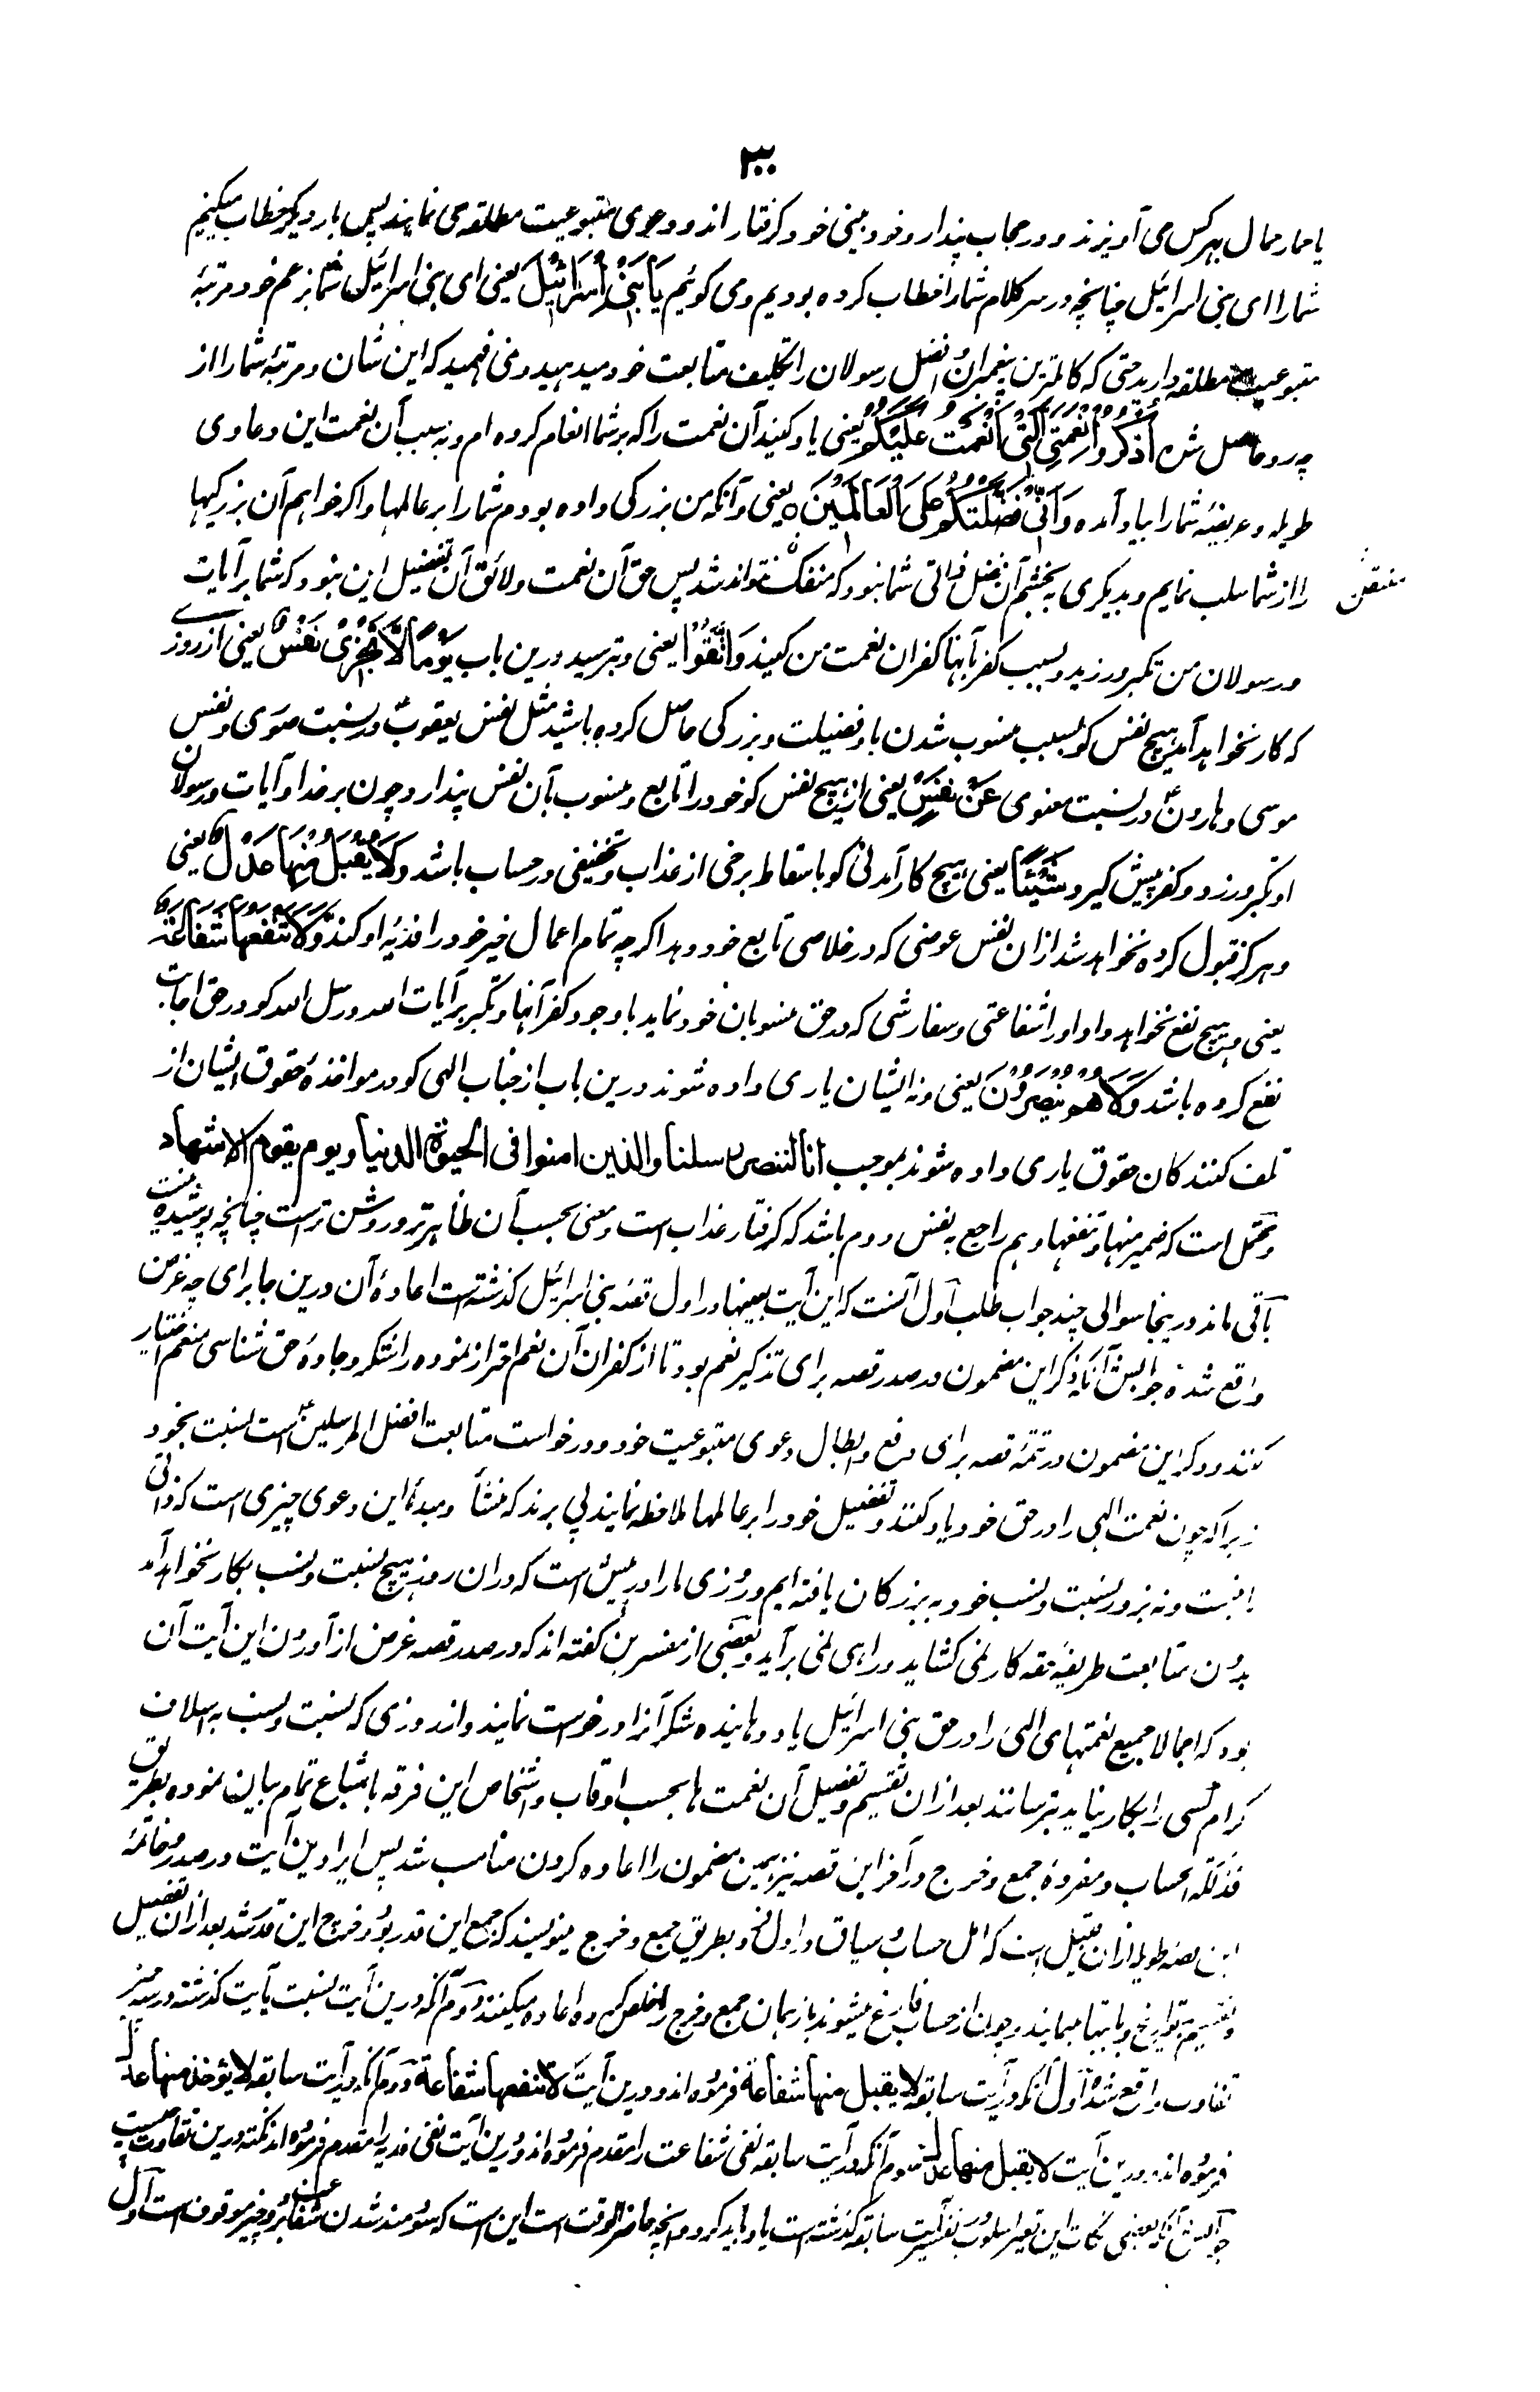 ۳۰۰
یا حمار حمال بهر کس می آویزند و در حجاب پندار و خودبینی خود گرفتار اند و دعوی متبوعیت مطلقه می نمایند پس بار دیگر خطاب میکنیم
شما را ای بنی اسرائیل چنانچه در سر کلام شما را خطاب کرده بودیم و می گوئیم یَا بَنِیْ اِسْرَائِیْلَ یعنی ای بنی اسرائیل شما بزعم خود مرتبهٔ
متبوعیت مطلقه دارید حتی که کاملترین پیغمبران و افضل رسولان را تکلیف متابعت خود میدهید و نمی فهمید که این شان و مرتبه شما را از
چه رو حاصل شده اُذْکُرُوْا نِعْمَتِیَ الَّتِیْ اَنْعَمْتُ عَلَیْکُمْ یعنی یاد کنید آن نعمت را که بر شما انعام کرده ام و به سبب آن نعمت این دعاوی
طویله و عریضه شما را بیاد آمده وَاَنِّیْ فَضَّلْتُکُمْ عَلَی الْعَالَمِیْنَ ه یعنی و آنکه من بزرگی داده بودم شما را بر عالمها و اگر خواهم آن بزرگیها
را از شما سلب نمایم و بدیگری به بخشم آن فضل ذاتی شما نبود که منفک نتواند شد پس حق آن نعمت و لائق آن تفضیل این نبود که شما بر آیات
و رسولان من تکبر ورزید و بسبب کفر بآنها کفران نعمت من کنید وَاتَّقُوْا یعنی و بترسید درین باب یَوْمًا لَّا تَجْزِیْ نَفْسٌ یعنی از روزے
که کار نخواهد آمد هیچ نفس گو بسبب منسوب شدن باو فضیلت و بزرگی حاصل کرده باشید مثل نفس یعقوبؑ در نسبت صوری و نفس
موسی و هارونؑ در نسبت معنوی عَنْ نَّفْسٍ یعنی از هیچ نفس گو خود را تابع و منسوب بآن نفس پندارد چون بر خدا و آیات و رسولان
او تکبر ورزد و کفر پیش گیرد شَیْئًا یعنی هیچ کار آمدنی گو باسقاط برخی از عذاب و تخفیفی در حساب باشد وَلَا یُقْبَلُ مِنْهَا عَدْلٌ یعنی
و هرگز قبول کرده نخواهد شد ازان نفس عوضی که در خلاصی تابع خود دهد اگرچه تمام اعمال خیر خود را فدیه او کند وَّلَا تَنْفَعُهَا شَفَاعَةٌ
یعنی و هیچ نفع نخواهد داد او را شفاعتی و سفارشی که در حق منسوبان خود نماید با وجود کفر آنها و تکبر بر آیات الله و رسل الله گو در حق اجانب
نفع کرده باشد وَلَا هُمْ یُنْصَرُوْنَ یعنی و نه ایشان یاری داده شوند درین باب از جناب الهی گو در مواخذهٔ حقوق ایشان از
تلف کنندگان حقوق یاری داده شوند بموجب انا لننصر رسلنا والذین امنوا فی الحیوة الدنیا و یوم یقوم الاشهاد
و محتمل است که ضمیر منها و تنفعها و هم راجع به نفس دوم باشد که گرفتار عذاب است و معنی بحسب آن ظاهرتر و روشن تر است چنانچه پوشیده نیست
باقی ماند درینجا سوالی چند جواب طلب اول آنست که این آیت بعینها در اول قصه بنی اسرائیل گذشته است اعادهٔ آن درین جا برای چه غرض
واقع شده جوابش آنکه ذکر این مضمون در صدر قصه برای تذکیر نعم بود تا از کفران آن نعم احتراز نموده راه شکر و جادهٔ حق شناسی منعم اختیار
کنند و ذکر این مضمون در تتمهٔ قصه برای دفع و ابطال دعوی متبوعیت خود و درخواست متابعت افضل المرسلینؑ است نسبت بخود
زیرا که چون نعمت الهی را در حق خود یاد کنند و تفضیل خود را بر عالمها ملاحظه نمایند پی برند که منشأ و مبدأ این دعوی چیزی است که ذاتی
ما نیست و نه بزور نسبت و نسب خود به بزرگان یافته ایم و روزی ما را در پیش است که دران روز هیچ نسبت و نسب بکار نخواهد آمد
بدون متابعت طریقهٔ حقه کار نمی کشاید و راهی نمی برآید و بعضی از مفسرین گفته اند که در صدر قصه غرض از آوردن این آیت آن
بود که اجمالا جمیع نعمتهای الهی را در حق بنی اسرائیل یاد دهانیده شکر آنرا درخواست نمایند و از روزی که نسبت و نسب به اسلاف
کرام کسی را بکار نیاید بترسانند بعد ازان تقسیم و تفصیل آن نعمت ها بحسب اوقات و اشخاص این فرقه باشباع تمام بیان نموده بطریق
فذلکه الحساب و مفروزهٔ جمع و خرج در آخر این قصه نیز همین مضمون را اعاده کردن مناسب شد پس ایراد این آیت در صدر و خاتمهٔ
این قصه طویل ازان قبیل است که اهل حساب و سیاق در اول نخ و بطریق جمع و خرج مینویسند که جمع این قدر بود و خرج این قدر شد بعد ازان تفصیل
و تقسیم بتواریخ و بابتها مینمایند و چون از حساب فارغ میشوند باز همان جمع و خرج را ملخص کرده اعاده میکنند دوم آنکه درین آیت نسبت بآیت گذشته در سه چیز
تفاوت واقع شده اول آنکه در آیت سابقه لا یقبل منها شفاعة فرموده اند و درین آیت لا تنفعها شفاعة دوم آنکه در آیت سابقه لا یؤخذ منها عدل
فرموده اند و درین آیت لا یقبل منها عدل سوم آنکه در آیت سابقه نفی شفاعت را مقدم فرموده اند و درین آیت نفی فدیه را مقدم فرموده اند نکته درین تفاوت چیست
جوابش آنکه بعضی نکات این تغیر اسلوب در تفسیر آیت سابقه گذشته است یاد باید کرد و آنچه حاضر الوقت است این است که سودمند شدن شفاعت بر دو چیز موقوف است اول